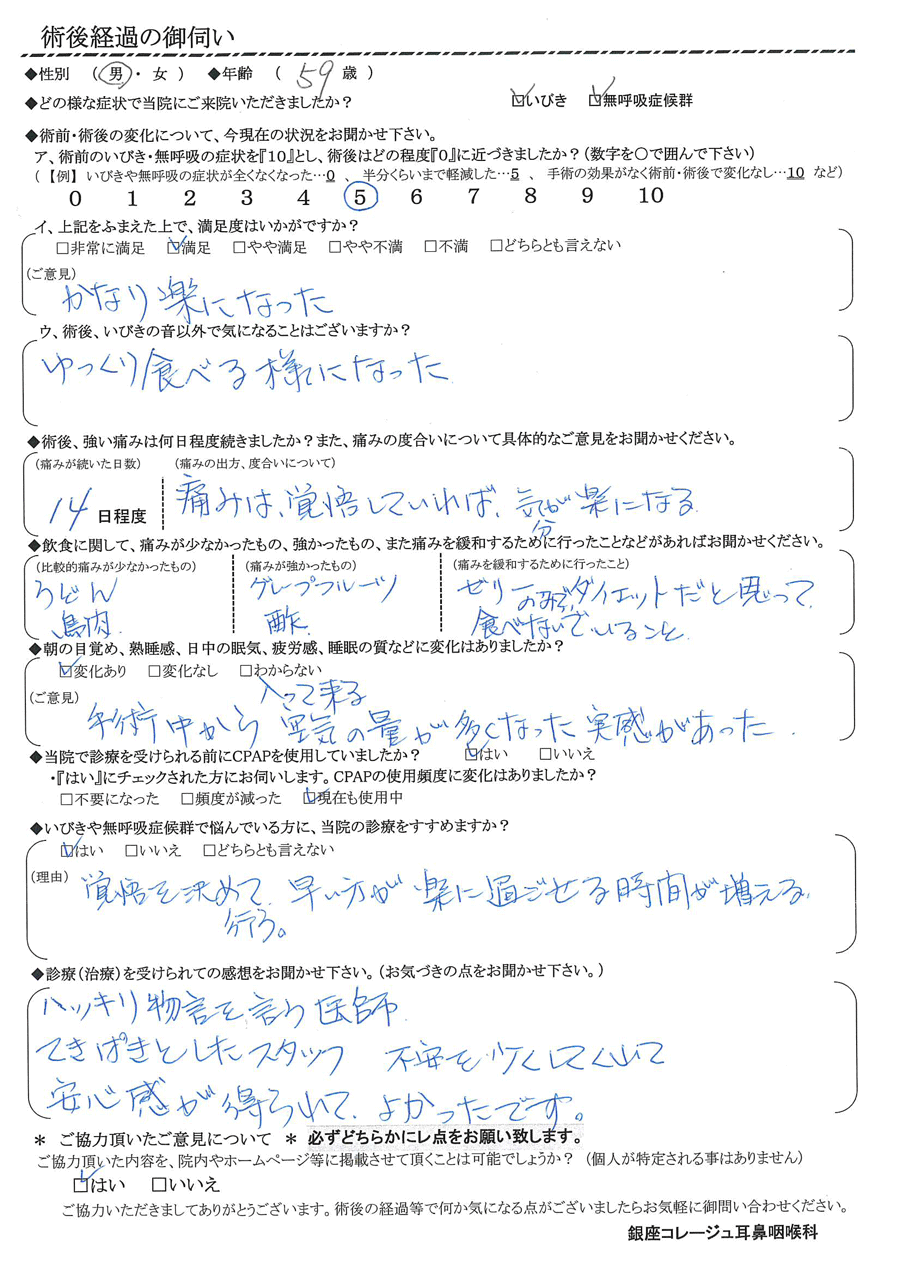 術後経過の御伺い
◆性別 （ 男 ・ 女 ） ◆年齢 （ 59 歳 ）
◆どの様な症状で当院にご来院いただきましたか？ ☑いびき ☑無呼吸症候群
◆術前・術後の変化について、今現在の状況をお聞かせ下さい。
ア、術前のいびき・無呼吸の症状を『10』とし、術後はどの程度『0』に近づきましたか？（数字を〇で囲んで下さい）
（【例】いびきや無呼吸の症状が全くなくなった…0 、 半分くらいまで軽減した…5 、 手術の効果がなく術前・術後で変化なし…10 など）
0 1 2 3 4 5 6 7 8 9 10
イ、上記をふまえた上で、満足度はいかがですか？
□非常に満足 ☑満足 □やや満足 □やや不満 □不満 □どちらとも言えない
（ご意見）
かなり楽になった
ウ、術後、いびきの音以外で気になることはございますか？
ゆっくり食べる様になった
◆術後、強い痛みは何日程度続きましたか？また、痛みの度合いについて具体的なご意見をお聞かせください。
（痛みが続いた日数） （痛みの出方、度合いについて）
14 日程度 痛みは、覚悟していれば、気分が楽になる
◆飲食に関して、痛みが少なかったもの、強かったもの、また痛みを緩和するために行ったことなどがあればお聞かせください。
（比較的痛みが少なかったもの） （痛みが強かったもの） （痛みを緩和するために行ったこと）
うどん グレープフルーツ ゼリーのみでダイエットだと思って
鳥肉 酢 食べないでいること
◆朝の目覚め、熟睡感、日中の眠気、疲労感、睡眠の質などに変化はありましたか？
☑変化あり □変化なし □わからない
（ご意見） 入って来る
手術中から 空気の量が多くなった実感があった.
◆当院で診療を受けられる前にCPAPを使用していましたか？ ☑はい □いいえ
・『はい』にチェックされた方にお伺いします。CPAPの使用頻度に変化はありましたか？
□不要になった □頻度が減った ☑現在も使用中
◆いびきや無呼吸症候群で悩んでいる方に、当院の診療をすすめますか？
☑はい □いいえ □どちらとも言えない
（理由） 覚悟を決めて、早い方が 楽に過ごせる時間が増える、
行う。
◆診療（治療）を受けられての感想をお聞かせ下さい。（お気づきの点をお聞かせ下さい。）
ハッキリ物言を言う医師
てきぱきとしたスタッフ 不安を少くしてくれて
安心感が得られて、よかったです。
＊ ご協力頂いたご意見について ＊ 必ずどちらかにレ点をお願い致します。
ご協力頂いた内容を、院内やホームページ等に掲載させて頂くことは可能でしょうか？（個人が特定される事はありません）
☑はい □いいえ
ご協力いただきましてありがとうございます。術後の経過等で何か気になる点がございましたらお気軽に御問い合わせください。
銀座コレージュ耳鼻咽喉科